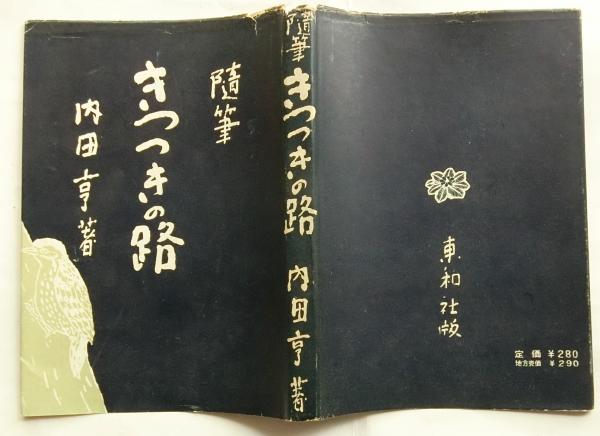 隨筆
きつつきの路
内田亨著
隨筆 きつつきの路 内田亨著
東和社版
定価 ¥280
地方売価 ¥290